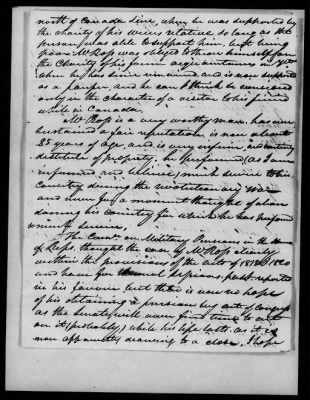 north of Canada Line, when he was supported by
the charity of his wives relative so long as that
person was able to support him, but being
poor Mr Ross was obliged to throw himself upon
the Charity of his former acquaintances in
when he has since remained, and is now supported
as a pauper, and he can I think be considered
only in the character of a visitor to his friend
while in Canada.
Mr Ross is a very worthy man, has ever
sustained a fair reputation, is now about
85 years of age and is very infirm and entirely
destitute of property, he performed (as I am
informed and believe) much service to his
country during the revolutionary War
and never for a moment thought of aban
doning his country for which he has performed
so much service,
The Comtee on Military Pensions in the House
of Reps, thought the case of Mr Ross clearly
within the provisions of the acts of 1818 & 1820
and have for several sessions, past, reported
in his favour but there is now no hope
of his obtaining a pension by act of Congress
as the Senate will never find time to act
on it (probably) while his life lasts as it is
now apparently drawing to a close. I hope